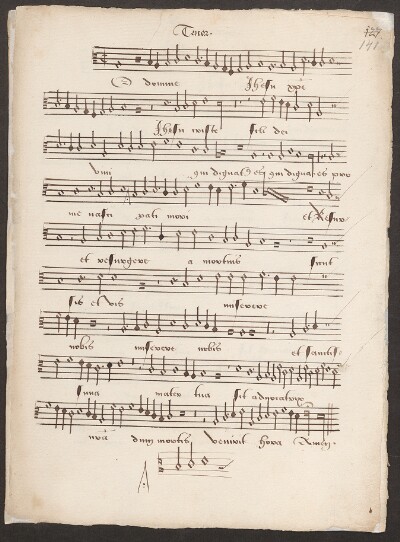 Tenor.
127
191
O domine Jhesu xpe
Jhesu xpiste fili dei
vivi qui dignat9 es qui dignat9 es pro
me nasci pati mori et Resur
et resurgere a mortuis sunt
sis et vis miserere
nobis miserere nobis et sanctis
sima mater tua sit advocatrix
nra dum mortis venerit hora Amen.
A